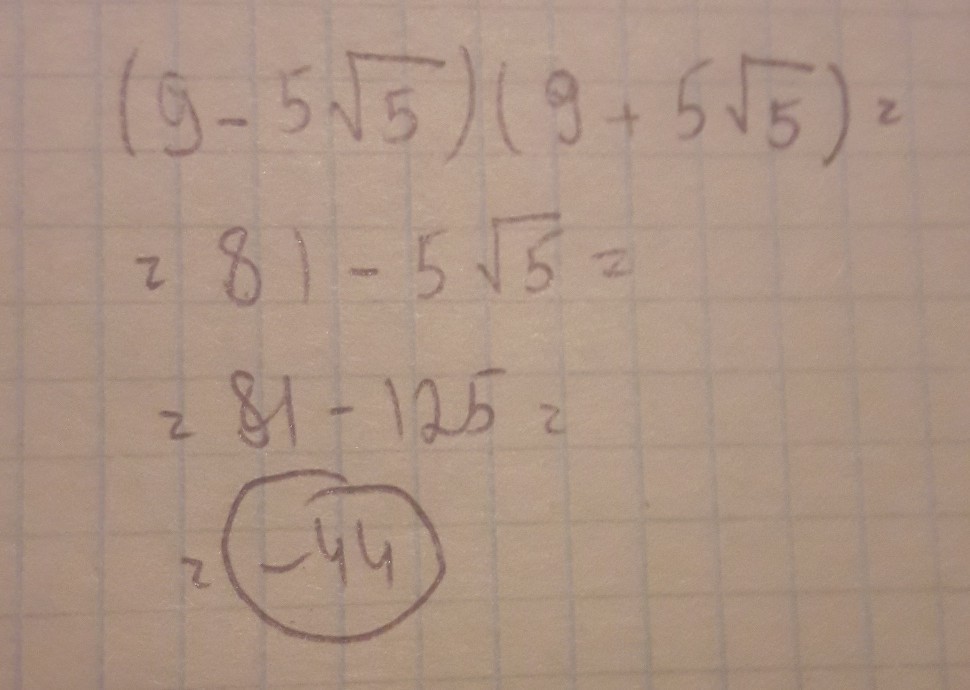 (9 - 5√5)(9 + 5√5) =
= 81 - 5√5 =
= 81 - 125 =
= -44